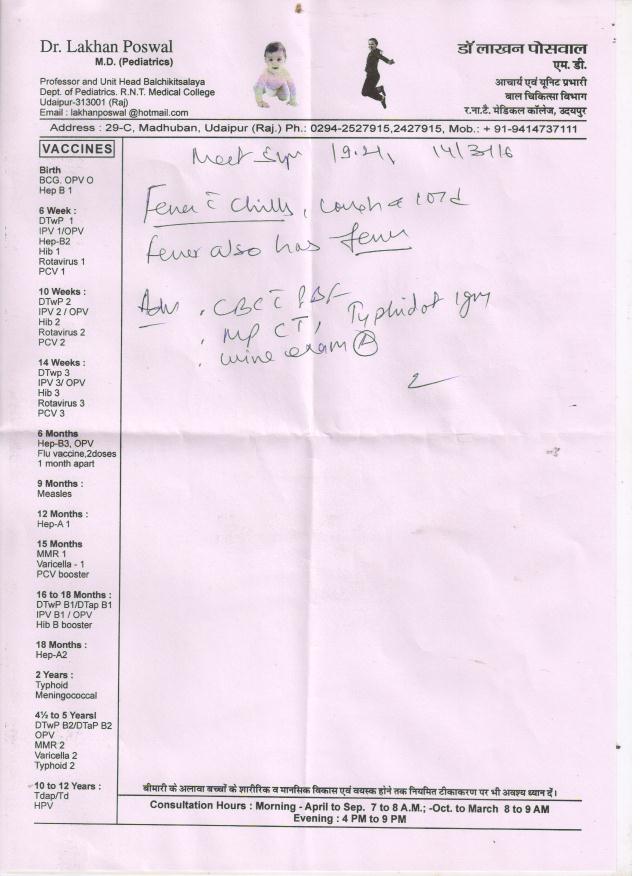 Dr. Lakhan Poswal
M.D. (Pediatrics)
Professor and Unit Head Balchikitsalaya
Dept. of Pediatrics. R.N.T. Medical College
Udaipur-313001 (Raj)
Email : lakhanposwal @hotmail.com
डॉ लाखन पोसवाल
एम. डी.
आचार्य एवं यूनिट प्रभारी
बाल चिकित्सा विभाग
र.ना.टै. मेडिकल कॉलेज, उदयपुर
Address : 29-C, Madhuban, Udaipur (Raj.) Ph.: 0294-2527915,2427915, Mob.: + 91-9414737111
VACCINES
Birth
BCG. OPV O
Hep B 1
6 Week :
DTwP 1
IPV 1/OPV
Hep-B2
Hib 1
Rotavirus 1
PCV 1
10 Weeks :
DTwP 2
IPV 2 / OPV
Hib 2
Rotavirus 2
PCV 2
14 Weeks :
DTwp 3
IPV 3/ OPV
Hib 3
Rotavirus 3
PCV 3
6 Months
Hep-B3, OPV
Flu vaccine,2doses
1 month apart
9 Months :
Measles
12 Months :
Hep-A 1
15 Months
MMR 1
Varicella - 1
PCV booster
16 to 18 Months :
DTwP B1/DTap B1
IPV B1 / OPV
Hib B booster
18 Months :
Hep-A2
2 Years :
Typhoid
Meningococcal
4½ to 5 Yearsl
DTwP B2/DTaP B2
OPV
MMR 2
Varicella 2
Typhoid 2
10 to 12 Years :
Tdap/Td
HPV
Meet 14/3/16
Fever c̄ chills, cough 107d
Fever also has fever
Adv . CBC c̄ PBF
Typhidot igm
. MP CT,
. urine exam
बीमारी के अलावा बच्चों के शारीरिक व मानसिक विकास एवं वयस्क होने तक नियमित टीकाकरण पर भी अवश्य ध्यान दें।
Consultation Hours : Morning - April to Sep. 7 to 8 A.M.; -Oct. to March 8 to 9 AM
Evening : 4 PM to 9 PM